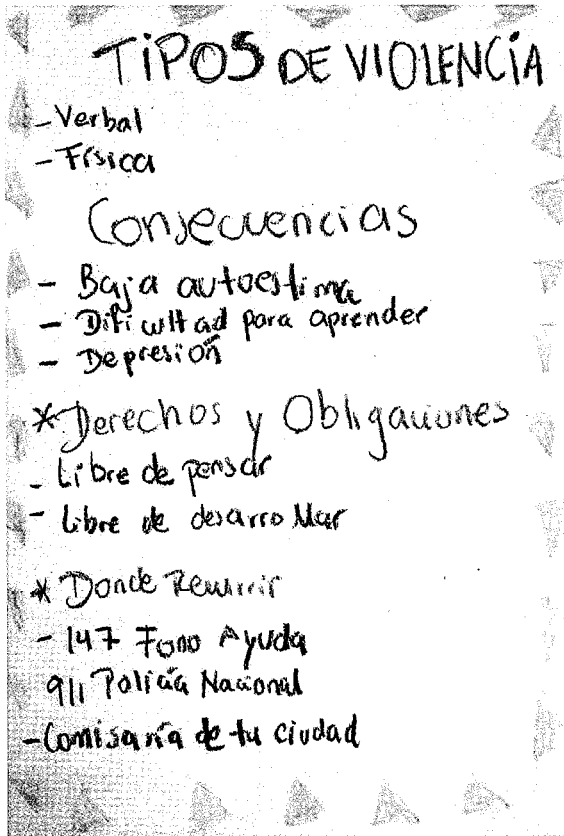 TIPOS DE VIOLENCIA
- Verbal
- Física
Consecuencias
- Baja autoestima
- Dificultad para aprender
- Depresión
* Derechos y Obligaciones
- Libre de pensar
- Libre de desarrollar
* Donde Recurrir
- 147 Fono Ayuda
911 Policía Nacional
- Comisaría de tu ciudad